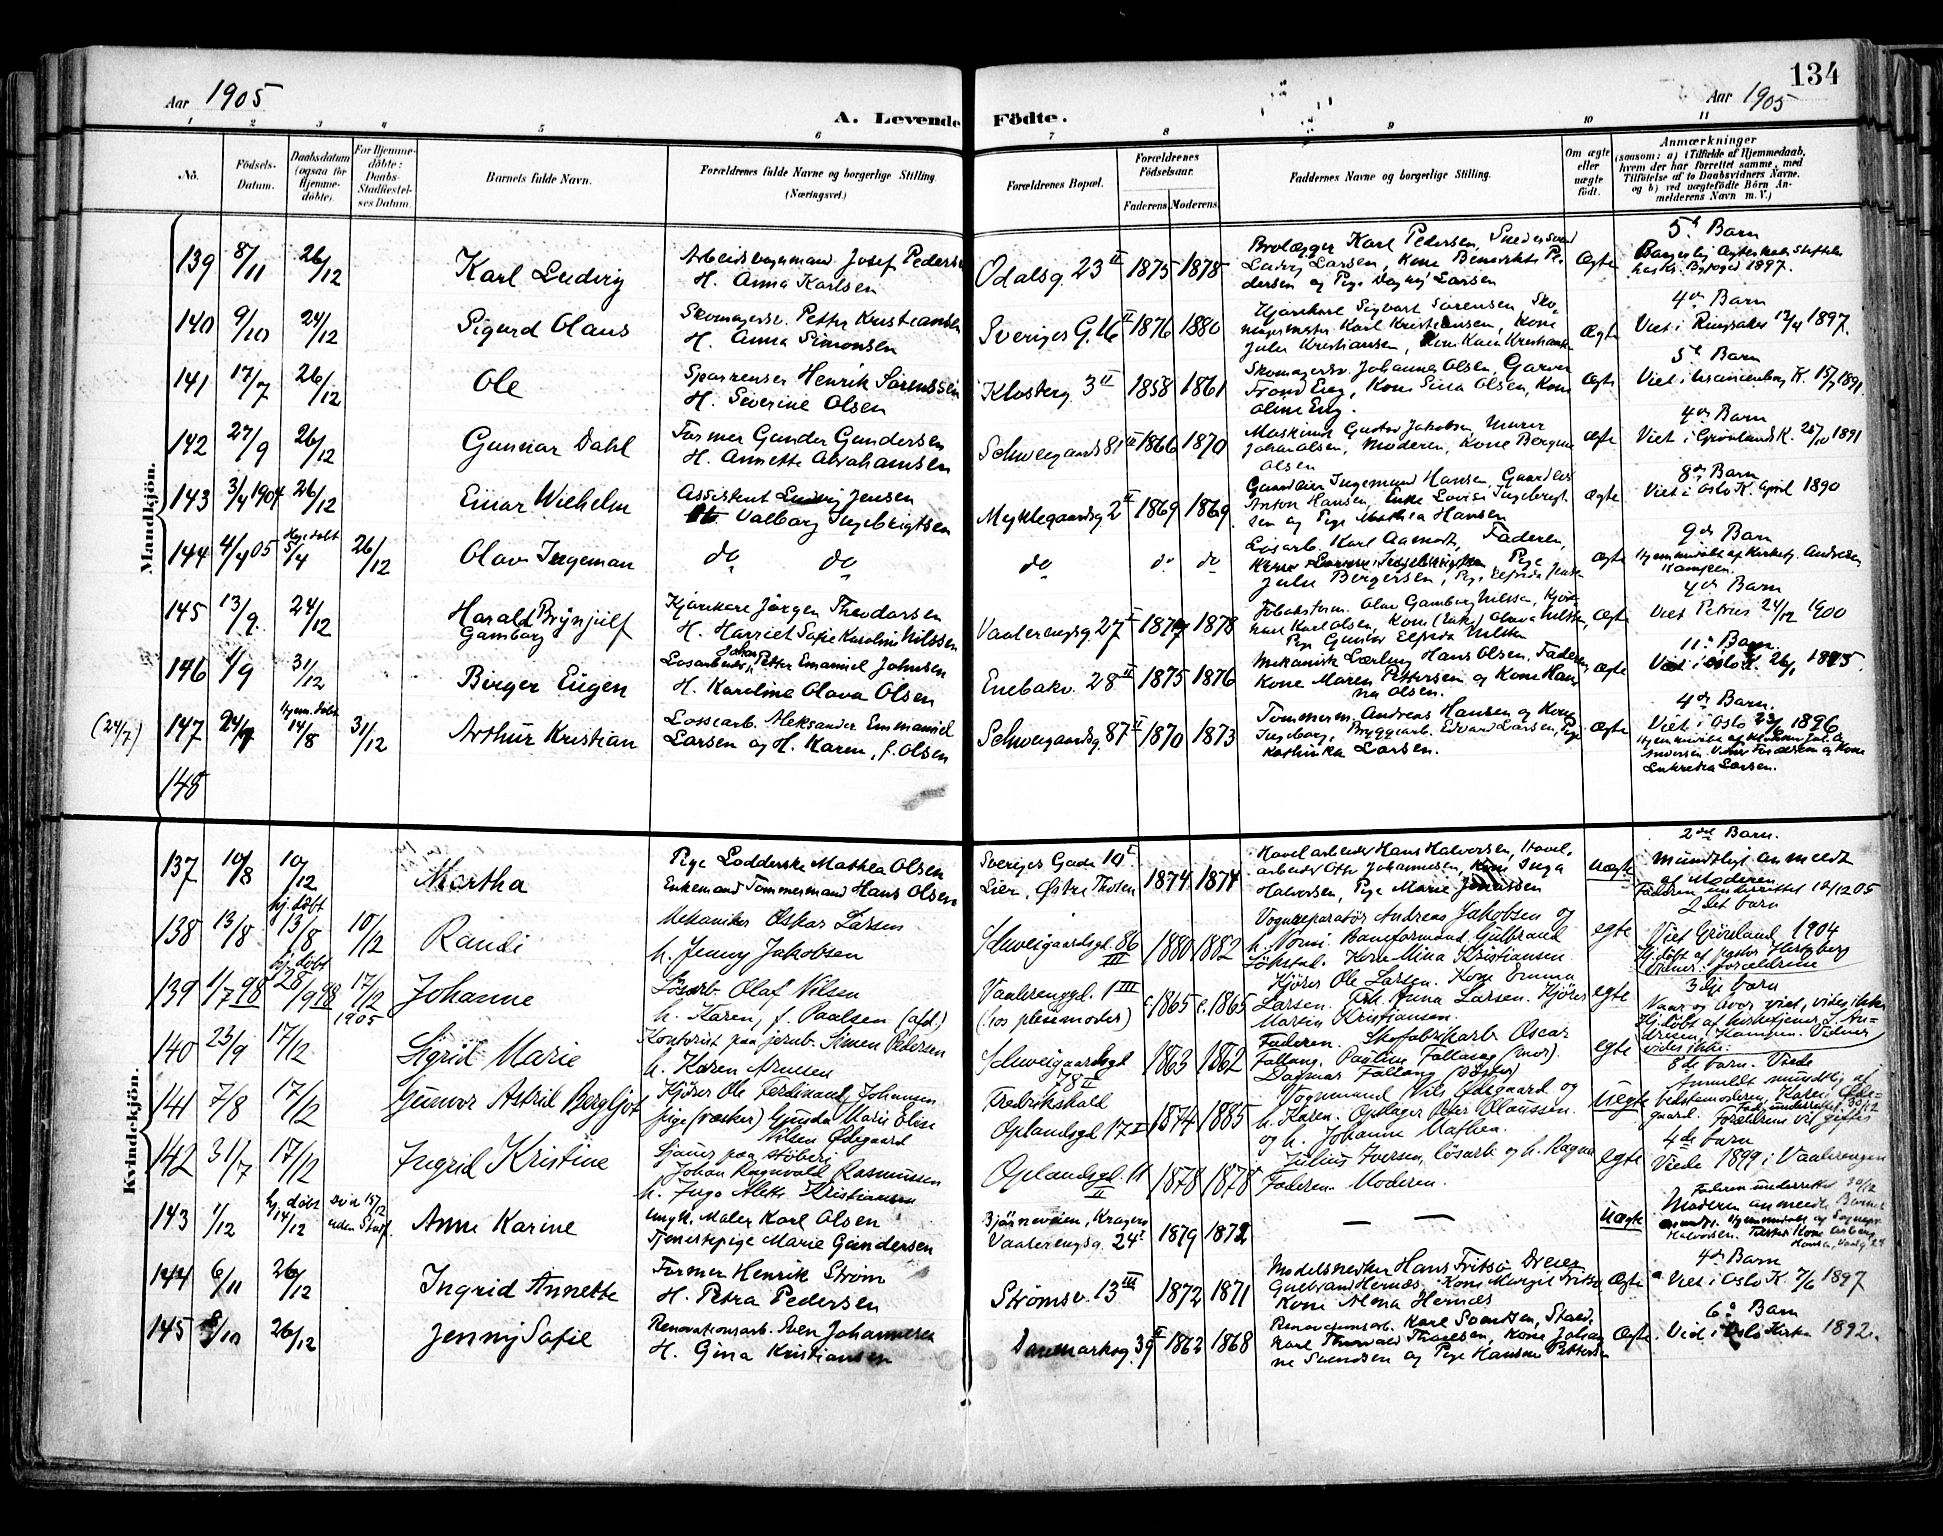 134
Aar 1905
A. Levende Födte.
Aar 1905
1 2 3 4 5 6 7 8 9 10 11
Nô.
Födsels-Datum.
Daabsdatum (ogsaa for Hjemme-döbte).
For Hjemme-döbte: Daabs-Stadfæstel-ses Datum.
Barnets fulde Navn.
Forældrenes fulde Navne og borgerlige Stilling. (Næringsvei.)
Forældrenes Bopæl.
Forældrenes Födselsaar.
Faderens. Moderens.
Faddernes Navne og borgerlige Stilling.
Om ægte eller uægte födt.
Anmærkninger
(saasom: a) i Tilfælde af Hjemmedaab, hvem der har forrettet samme, med Tilföielse af to Daabsvidners Navne, og b) ved uægtefödte Börn An-melderens Navn m. V.)
Mandkjön.
139 8/11 26/12 Karl Ludvig
Arbeidsvognmand Josef Peders
H. Anna Karlsen
Odalsg. 23 II 1875 1878
Brolægger Karl Pedersen, Snedkersvend
Ludvig Larsen, Kone Benedikte Pe-
dersen og Pige Dagny Larsen
Ægte
5te Barn
1897.
140 9/10 24/12 Sigurd Olaus
Skomagersv. Petter Kristiansen
H. Anna Simonsen
Sveriges G. 16 II 1876 1880
Kjörekarl Sigvart Sörensen, Sko-
magermester Karl Kristiansen, Kone
Julie Kristiansen, Kone Karen Kristiansen
Ægte
4de Barn
Viet i Ringsaker 12/4 1897.
141 17/7 26/12 Ole
Henrik Sörenssen
H. Severine Olsen
Klosterg. 3 II 1858 1861
Skomagersv. Johannes Olsen, Garver
Trond Eng, Kone Sina Olsen, Kone
Oline Eng.
Ægte
5te Barn
Viet i Uranienborg K. 15/7 1891.
142 27/9 26/12 Gunnar Dahl
Former Gunder Gundersen
H. Annette Abrahamsen
Schweigaards 81 II 1866 1870
Maskinist Gustav Jakobsen, Murer
Johan Olsen, Moderen, Kone Bergine
Olsen
Ægte
4de Barn
Viet i Grönlands K. 25/10 1891
143 3/4 1904 26/12 Einar Wilhelm
Assistent Ludvig Jensen
H. Valborg Ingebrigtsen
Myklegaardsg 2 II 1869 1869
Gaardeier Ingemund Hansen, Gaardeier
Anton Hansen, Enke Lovise Ingebrigt-
sen og Pige Mathea Hansen
Ægte
8de Barn
Viet i Oslo K. April 1890
144 4/4 05 Hjedöbt 5/4 26/12 Olav Ingeman
do do
do do do
Lösarb. Karl Aamodt, Faderen,
Kone Lovise Ingebrigtsen, Pige
Julie Bergersen, Pige Elfrida Jensen
Ægte
9de Barn
Hjemmedöbt af Kirketj. Andresen
Kampen.
145 13/9 24/12 Harald Brynjulf
Gamborg
Kjörekarl Jörgen Theodorsen
H. Harriet Sofie Karoline Nilssen
Vaalerengsg. 27 I 1877 1878
Olav Gamborg Nilssen, Kjöre-
karl Karl Olsen, Kone (Enke) Olava Nilssen,
Pige Gunda Elfrida Nilssen
Ægte
4de Barn
Viet Petrus 24/12 1900
146 1/9 31/12 Birger Eugen
Lösarbeider Johan Petter Emanuel Johnsen
H. Karoline Olava Olsen
Enebakv. 28 II 1875 1876
Mekanisk Lærling Hans Olsen, Faderen,
Kone Maren Pettersen og Kone Han-
na Olsen.
Ægte
11te Barn.
Viet i Oslo K. 26/1 1895.
(24/7) 147 24/7 Hjem. döbt 14/8 31/12 Arthur Kristian
Lossearb. Aleksander Emmanuel
Larsen og H. Karen, f. Olsen
Schweigaardsg. 87 II 1870 1873
Tömmerm. Andreas Hansen og Kone
Ingeborg, Bryggearb. Edvard Larsen, Pige
Kathinka Larsen.
Ægte
4de Barn.
Viet i Oslo 23/6 1896
Andersen. Vidner Faderen og Kone
Lukretia Larsen.
148
Kvindekjön.
137 10/8 10/12 Martha
Pige Lodderske Mathea Olsen
Enkemand Tömmermand Hans Olsen
Sveriges Gade 10 I
Lier, Östre Thoten 1874 1874
Hövelarbeider Hans Halvorsen, Hövel-
arbeider Otto Johannesen, Kone Inga
Halvorsen, Pige Marie Jonassen
Uægte
2det Barn.
Mundtligt anmeldt
af Moderen
Faderen underrettet 12/12 05
138 13/8 hj. döbt 13/8 10/12 Randi
Mekaniker Oskar Larsen
h. Jenny Jakobsen
Schweigaardsgd. 86 III 1880 1882
Vognreparatör Andreas Jakobsen og
h. Nomi. Baneformand Gulbrand
Lökstad. Kone Mina Kristiansen.
egte
2det barn
Viet Grönland 1904
Hj. döbt af pastor Hertzberg
Vidner: forældrene
139 1/7 98 hj. döbt 28/9 98 17/12 1905 Johanne
Lösarb. Olaf Nilsen
h. Karen, f. Paulsen (afd.)
Vaalerenggd. 1 III
(hos pleiemoder) c. 1865 c. 1865
Kjörer Ole Larsen. Kone Emma
Larsen. Frk. Anna Larsen. Kjörer
Martin Kristiansen.
egte
3dje barn
Naar og hvor viet, vides ikke
Hj. döbt af kirketjener J. An-
dresen, Kampen. Vidner
vides ikke.
140 23/9 17/12 Sigrid Marie
Kontorist paa jernb. Simen Pedersen
h. Karen Arnesen
Schweigaardsgd 78 II 1863 1862
Faderen. Skofabrikarb. Oscar
Fallang. Pauline Fallang (mor).
Dagmar Fallang (söster)
egte
8de barn. Viede
141 7/8 17/12 Gunvor Astrid Bergljot
Kjörer Ole Ferdinand Johansen
pige (vasker) Gunda Marie Elise
Nilsen Ödegaard
Fredrikshald
Oplandsgd 17 I 1874 1885
Vognmand Nils Ödegaard og
h. Karen. Opdager Peter Olaussen
og h. Johanne Mathea.
uegte
Anmeldt mundtlig af
bedstemoderen, Karen Öde-
gaard. Fader underrettet 30/12
Forældrene vil giftes
142 31/7 17/12 Ingrid Kristine
Sjauer paa støberi
Johan Ragnvald Rasmussen
h. Inga Alette Kristiansen
Oplandsgd. 11 II 1878 1878
Julius Iversen, lösarb og h. Ragna
Faderen. Moderen.
egte
4de barn
Viede 1899 i Vaalerengen
143 1/12 hj. döbt 14/12 Död 15/12 uden Stadf. Anne Karine
Ungk. Maler Karl Olsen
Tjenestepige Marie Gundersen
Björneveien, Kragerö
Vaalerengsg. 24 I 1879 1872
— —
Uægte
Faderen underrettet 30/12
Moderen anmeldte Barnet
144 6/11 26/12 Ingrid Annette
Former Henrik Ström
H. Petra Pedersen
Strömsv. 13 III 1872 1871
Modelsnedker Hans Fritsö, Dreier
Gulbrand Hernæs, Kone Margit Fritsö,
Kone Alma Hernæs
Ægte
4de Barn
Viet i Oslo K. 7/6 1897
145 8/10 26/12 Jenny Sofie
Renovationsarb. Even Johannesen
H. Gina Kristiansen
Danemarksg. 39 II 1862 1868
Renovationsarb. Karl Svendsen, Stald-
karl Thorvald Thoresen, Kone Johan-
ne Svendsen og Pige Hansine Pettersen
Ægte
6te Barn
Vied i Oslo Kirke 1892.